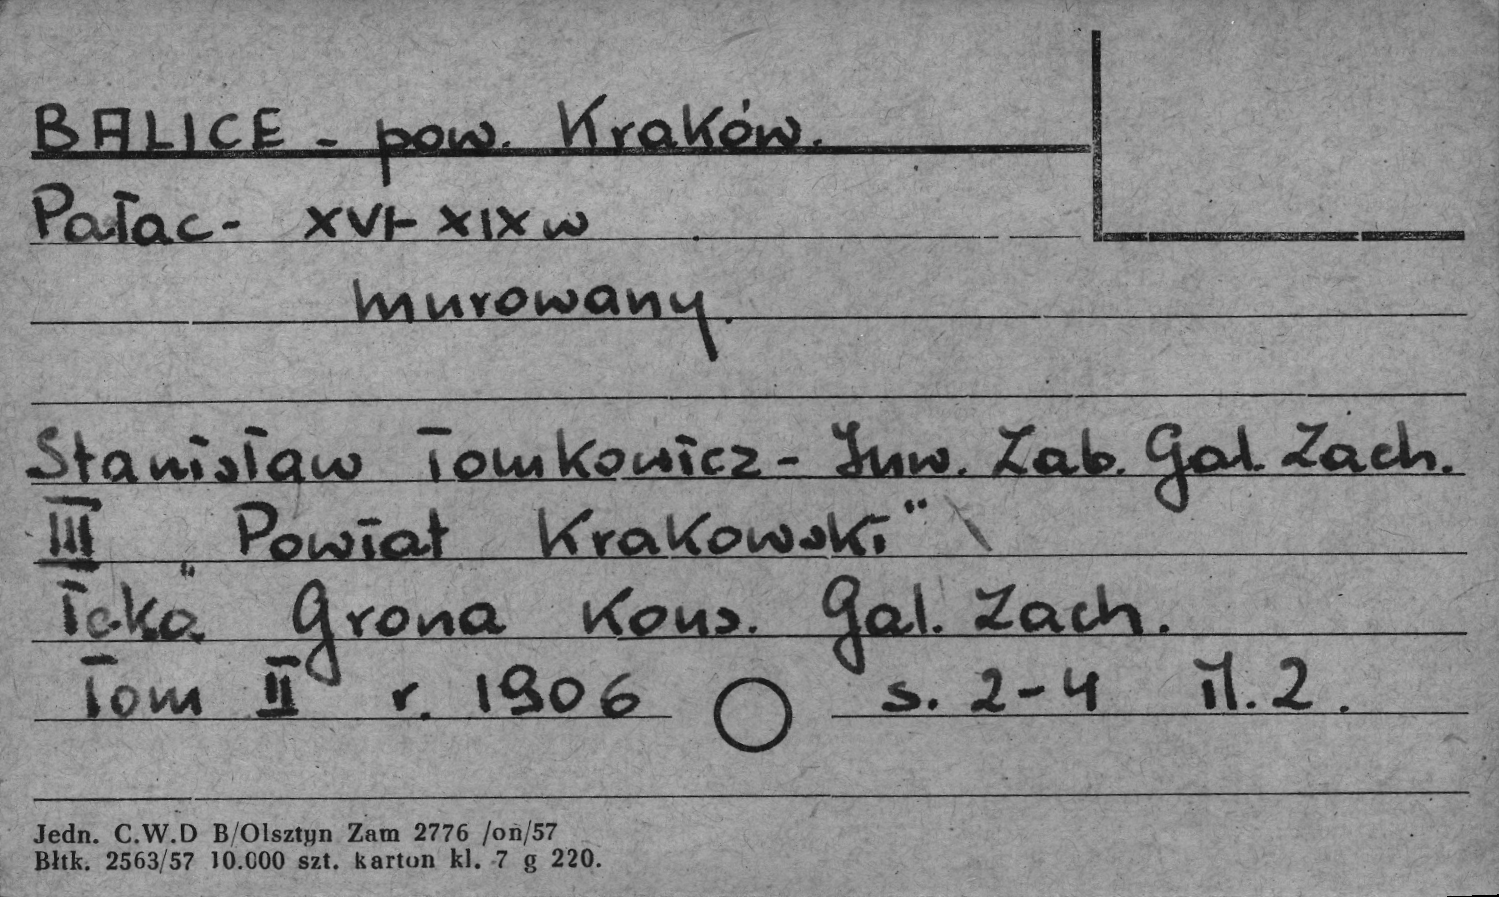 BALICE - pow. Kraków.
Pałac - XVI-XIX w
murowany.
Stanisław Tomkowicz - Inw. Zab. Gal. Zach.
III Powiat Krakowski"
"Teka Grona Kons. Gal. Zach.
Tom II r. 1906 s. 2-4 il. 2.
Jedn. C.W.D B/Olsztyn Zam 2776 /on/57
Błtk. 2563/57 10.000 szt. karton kl. 7 g 220.